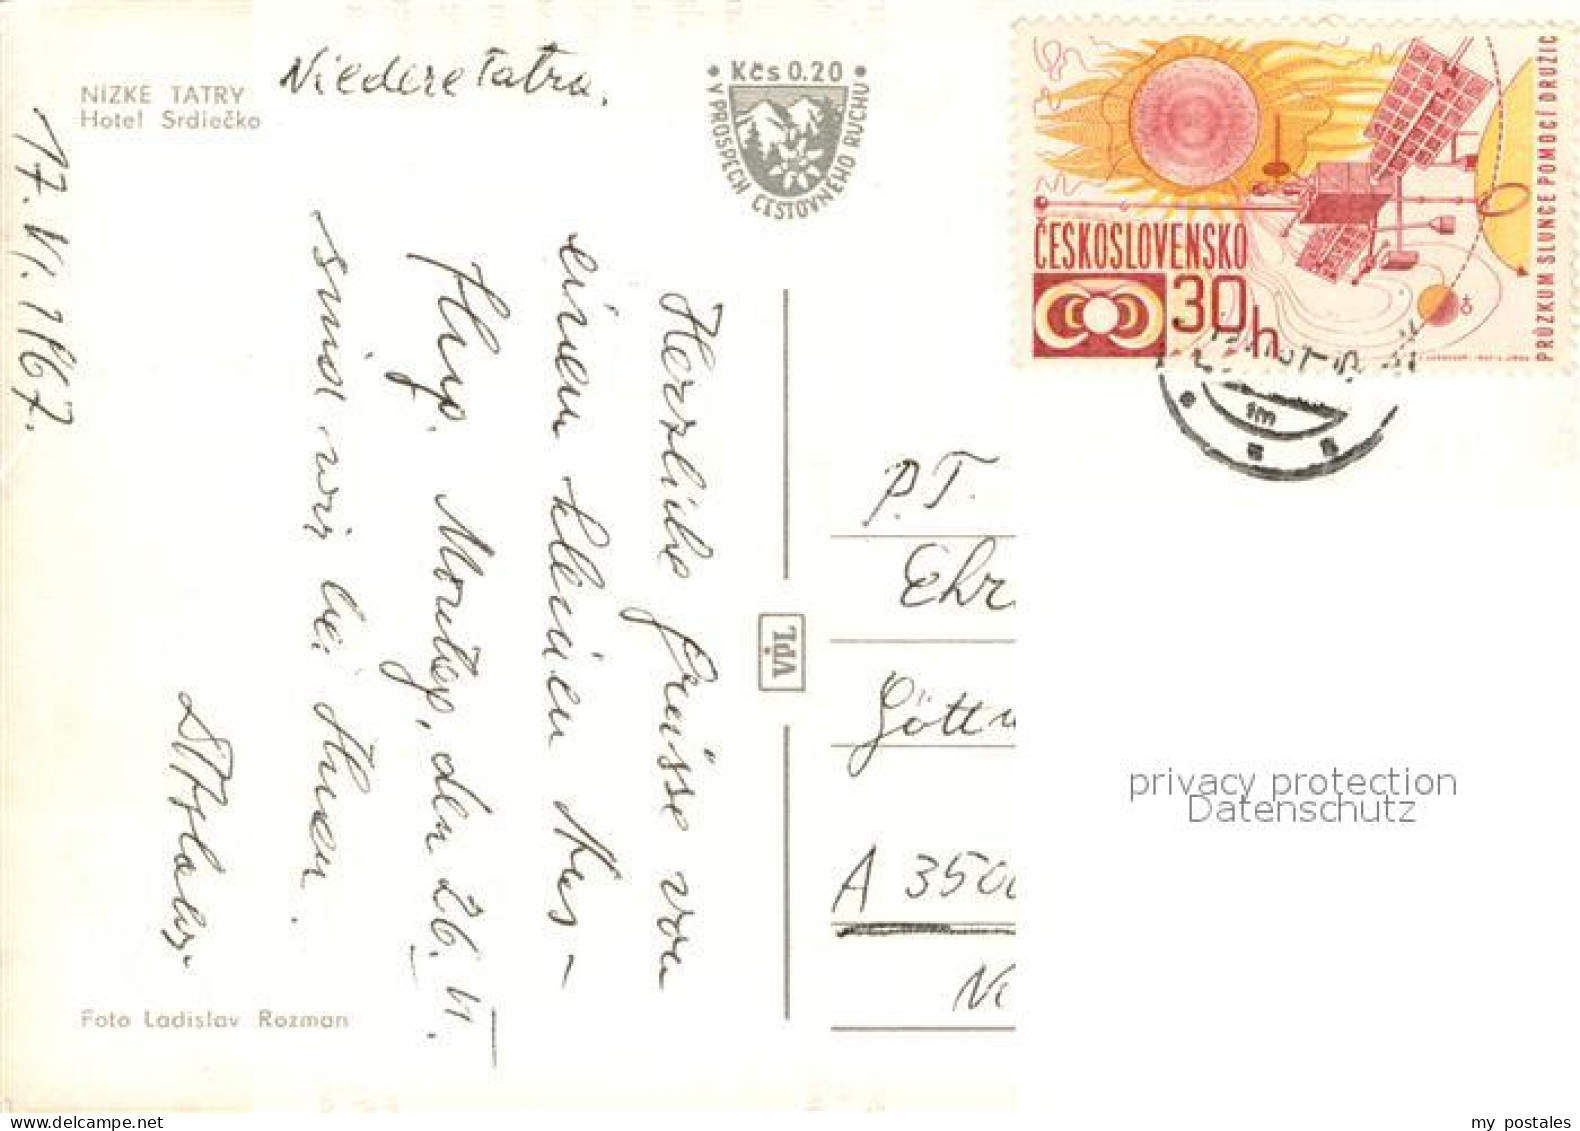 NÍZKE TATRY
Hotel Srdiečko
Niedere Tatra.
17. VI. 1967.
Kčs 0.20
V PROSPECH CESTOVNÉHO RUCHU
Herzliche Grüsse von
einen kleinen
Montag, den 26. VI.
sind wir bei Ihnen.
Foto Ladislav Rozman
VPL
ČESKOSLOVENSKO
30h
PRŮZKUM SLUNCE POMOCÍ DRUŽIC
P.T.
Ehr
Gött
A 350
privacy protection
Datenschutz
my postales